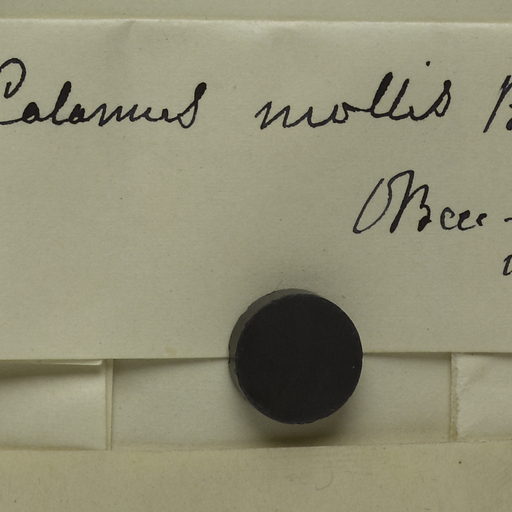 Calamus mollis B
OBecc